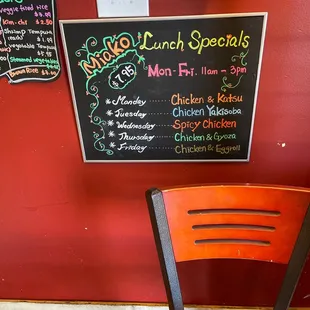 veggie fried Rice
Kim-chi $2.50
Shrimp Tempura
vegetable Tempura
Brown Rice
Miako Lunch Specials
$7.95
Mon-Fri. 11am - 3pm
*Monday........ Chicken & Katsu
*Tuesday........ Chicken Yakisoba
*Wednesday...... Spicy Chicken
*Thursday....... Chicken & Gyoza
*Friday......... Chicken & Eggroll